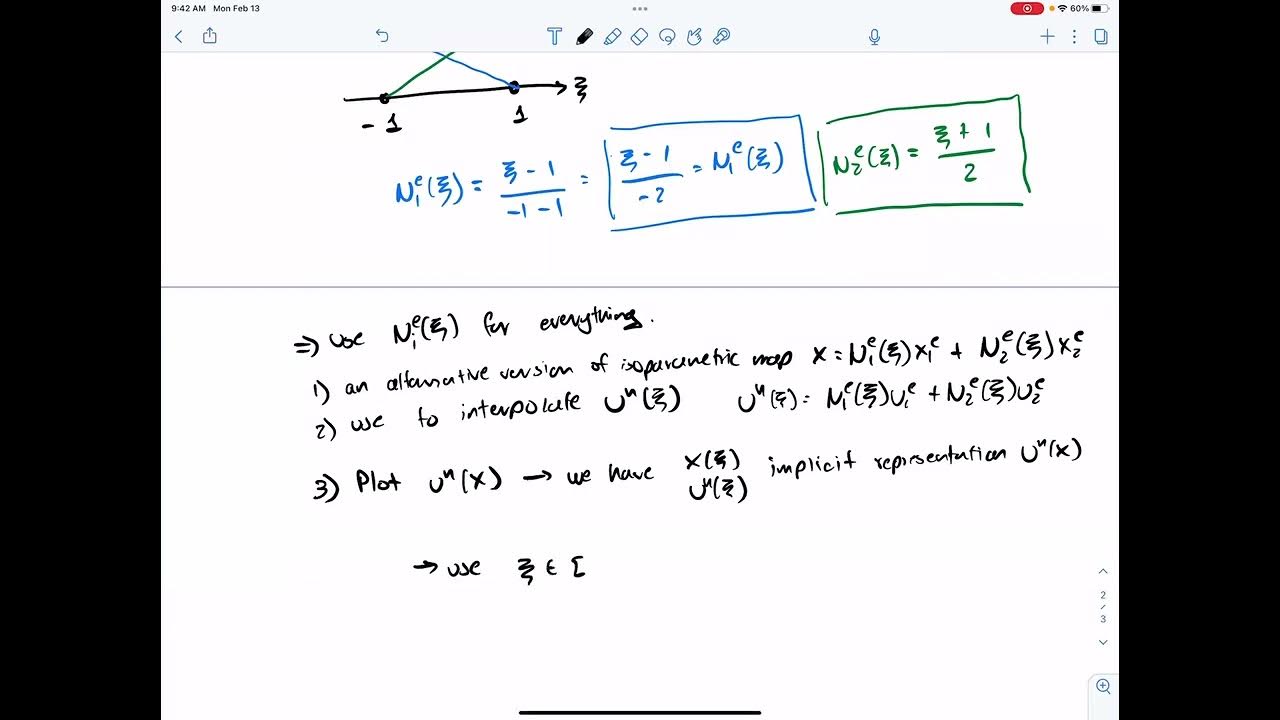 9:42 AM Mon Feb 13
60%
ξ
-1
1
N₁ᵉ(ξ) = (ξ - 1)/(-1 - 1) = (ξ - 1)/(-2) = N₁ᵉ(ξ)
N₂ᵉ(ξ) = (ξ + 1)/2
⇒ use Nᵢᵉ(ξ) for everything.
1) an alternative version of isoparametric map x = N₁ᵉ(ξ)x₁ᵉ + N₂ᵉ(ξ)x₂ᵉ
2) use to interpolate uʰ(ξ) uʰ(ξ) = N₁ᵉ(ξ)u₁ᵉ + N₂ᵉ(ξ)u₂ᵉ
3) Plot uʰ(x) → we have x(ξ) uʰ(ξ) implicit representation uʰ(x)
→ use ξ ∈ [
2
/
3